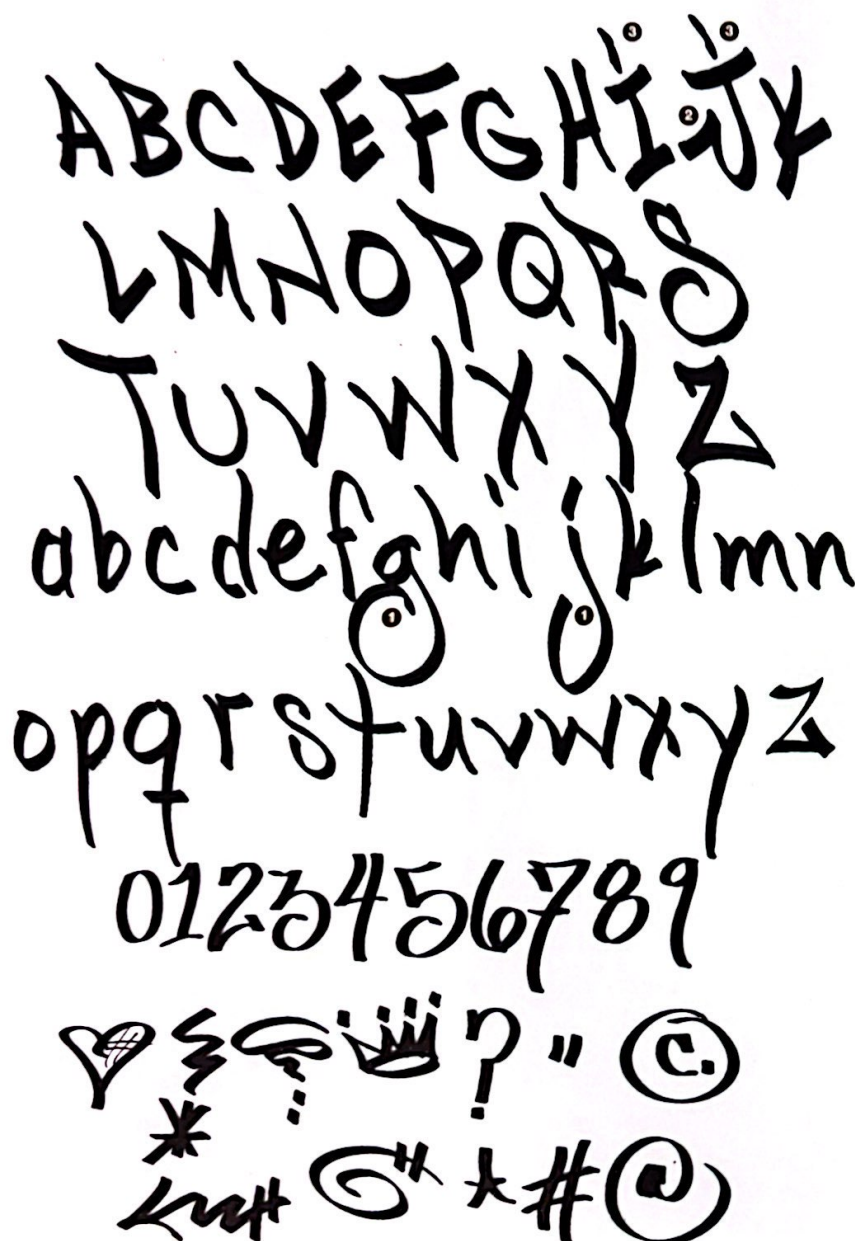 ABCDEFGHIJK
LMNOPQRS
TUVWXYZ
abcdefghijklmn
opqrstuvwxyz
0123456789
? " ©
*
* # @